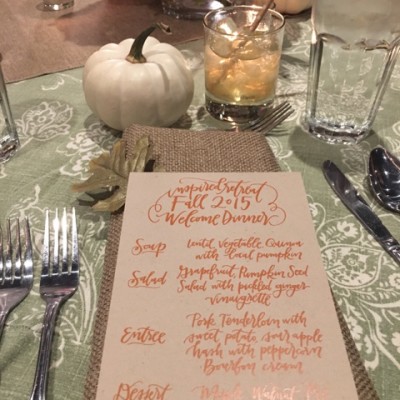 inspired retreat
Fall 2015
Welcome Dinner
Soup
Lentil Vegetable Quinoa
with local pumpkin
Salad
Grapefruit, Pumpkin Seed
Salad with pickled ginger
vinaigrette
Entree
Pork Tenderloin with
sweet potato, sour apple
hash with peppercorn
Bourbon cream
Dessert
Maple Walnut Pie